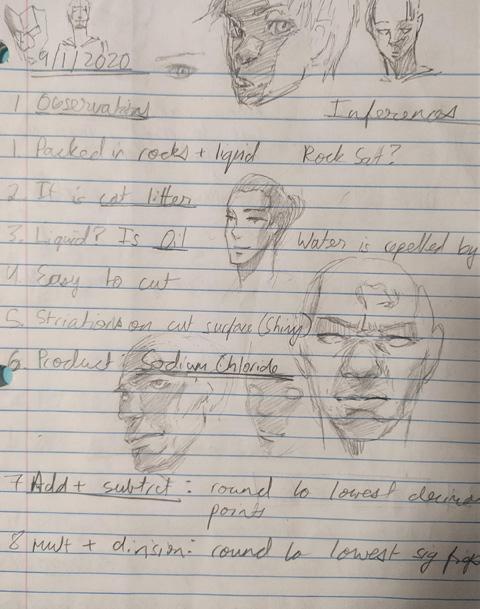 9/1/2020
1 Observations Inferences
1. Packed in rocks + liquid Rock Salt?
2. It is cat litter
3. Liquid? Is Oil Water is repelled by
4. Easy to cut
5. Striations on cut surface (Shiny)
6. Product: Sodium Chloride
7 Add + subtrct: round to lowest decima
points
8 Mult + division: round to lowest sig figs